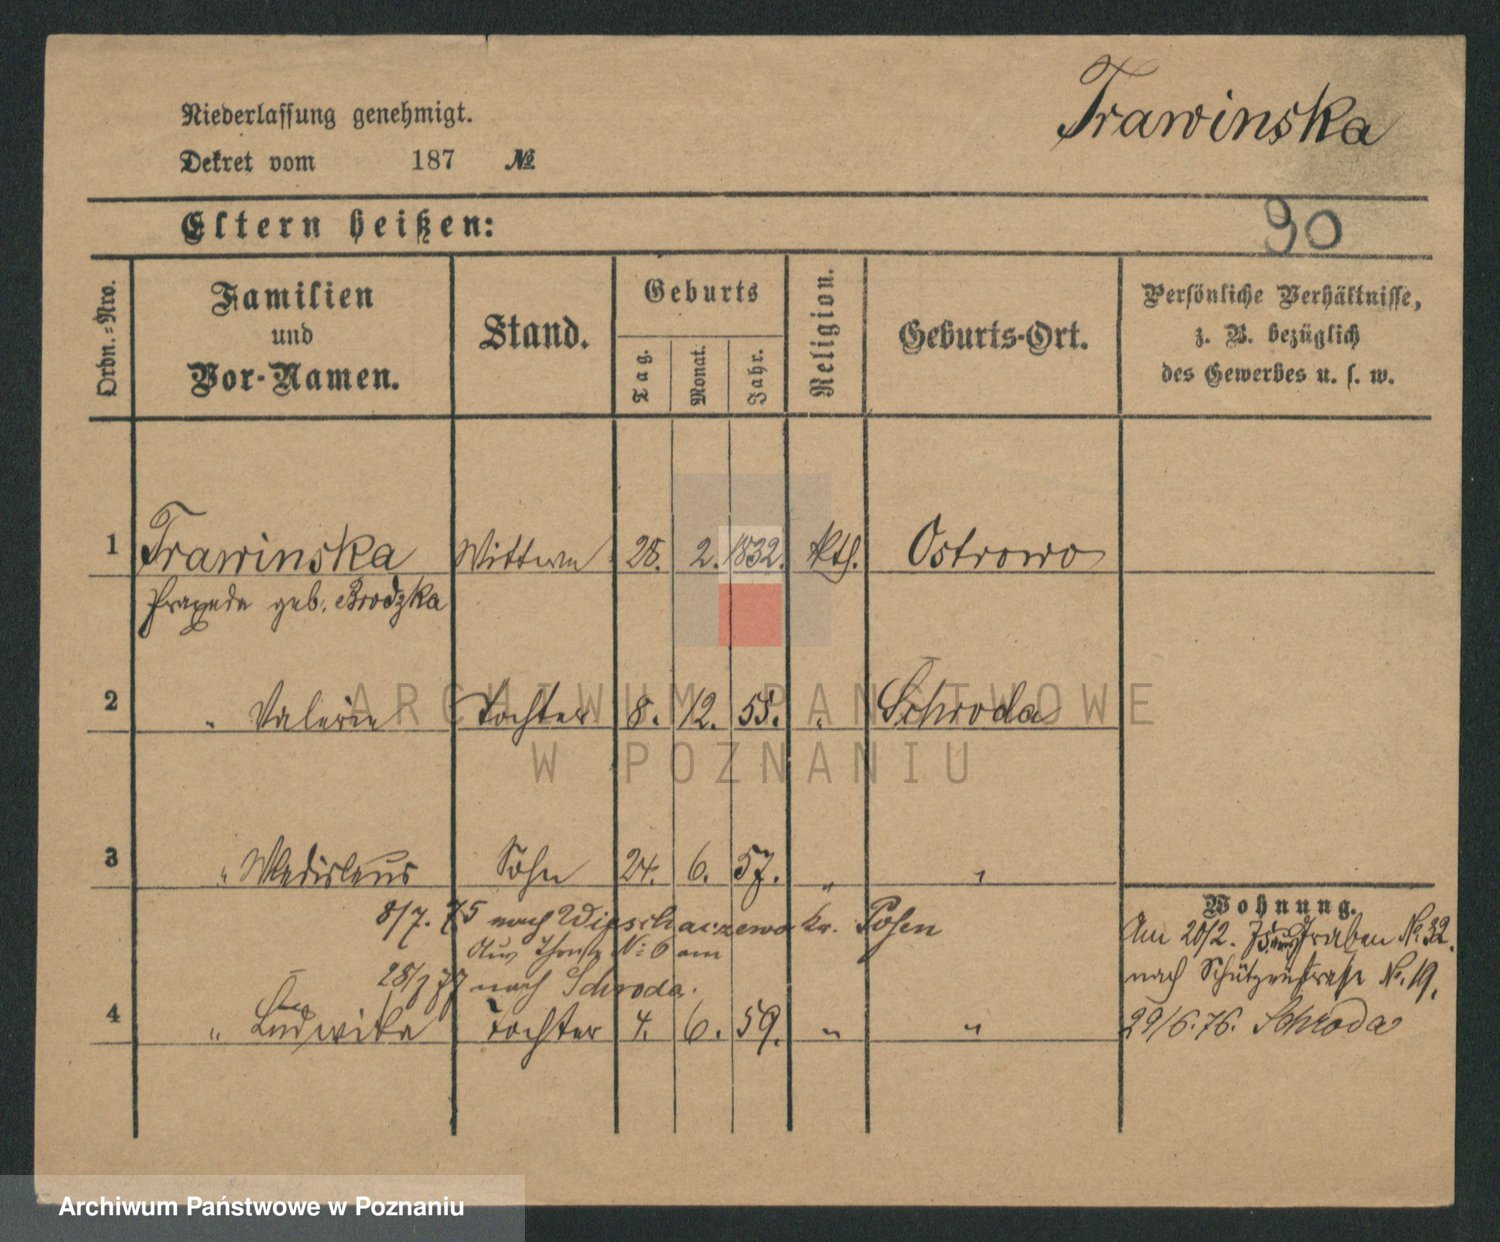 Niederlassung genehmigt.
Trawinska
Dekret vom 187 №
Eltern heißen:
90
Ordn.-Nro.
Familien
und
Vor-Namen.
Stand.
Geburts
Tag.
Monat.
Jahr.
Religion.
Geburts-Ort.
Persönliche Verhältnisse,
z. B. bezüglich
des Gewerbes u. s. w.
1 Trawinska Wittwe 28. 2. 1832. kth. Ostrowo
Praxeda geb. Brodzka
2 " Valerie Tochter 8. 12. 55. " Schroda
3 " Wladislaus Sohn 24. 6. 57. " "
Wohnung.
8/7. 75 nach Wierschaczewo Kr. Posen
Am 20/2. Graben № 32.
No 6 am
nach Schützenstrasse No. 19.
28/ 77 nach Schroda.
4 " Ludwika Tochter 4. 6. 59. " "
29/6.76. Schroda
ARCHIWUM PAŃSTWOWE
W POZNANIU
Archiwum Państwowe w Poznaniu